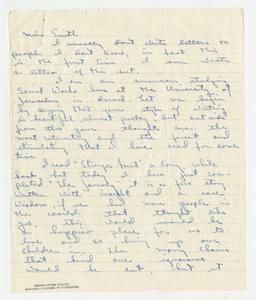 Miss Smith
I usually don't write letters to
people I don't know, in fact this
is the first time I ever wrote
a letter of this sort.
I am an american studying
Social Work here at the University of
Jerusalem in Israel. Let me begin
by saying that your style of writing
is beautiful almost poetry - but aside
from this your thoughts are the
most interesting and the
stimulating that I have read for some
time
I read "Strange Fruit" a long while
back but today I have just com-
pleted "The Journey" it is a fine story
written with insight and rare
wisdom, if we had more people in
the world that thought like
you, this world would be
a happier place for us to
live and so bring up our
children in. The many chains
that bind our ignorance
would be cut, but it